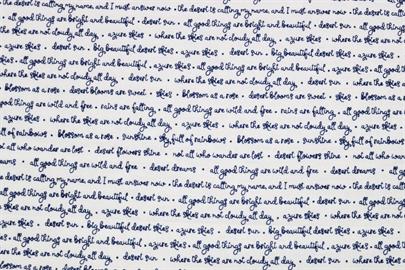 the desert is calling my name, and I must answer now • the desert is calling my name, and I must answer now • the
all good things are bright and beautiful • desert sun • all good things are bright and beautiful •
azure skies • where the skies are not cloudy all day, azure skies • where the skies are
azure skies • desert sun • big beautiful desert skies • desert sun • big beautiful desert skies
skies • all good things are bright and beautiful • azure skies • all good things are bright and beautiful
skies are not cloudy all day, • desert sun • where the skies are not cloudy all day, • desert
• blossom as a rose • desert blooms are sweet • skies • blossom as a rose • desert blooms are sweet •
good things are wild and free • rains are falling, • all good things are wild and free • rains are falling, • all good
azure skies • where the skies are not cloudy all day, azure skies • where the skies are not cloudy
full of rainbows • blossom as a rose • sunshine • sky full of rainbows • blossom as a rose • sunshine • sky
not all who wander are lost • desert flowers shine • not all who wander are lost • desert flowers shine • not all who
dreams • all good things are wild and free • desert dreams • all good things are wild and free • desert dreams • all
is calling my name, and I must answer now • the desert is calling my name, and I must answer now • the desert is calling
good things are bright and beautiful • desert sun • all good things are bright and beautiful • desert sun
where the skies are not cloudy all day, azure skies • where the skies are not cloudy all day,
desert sun • big beautiful desert skies • desert sun • big beautiful desert skies • desert
azure skies • all good things are bright and beautiful • azure skies • all good things are bright
skies are not cloudy all day, • desert sun • where the skies are not cloudy all day, • desert sun •
blossom as a rose • desert blooms are sweet • skies • blossom as a rose • desert